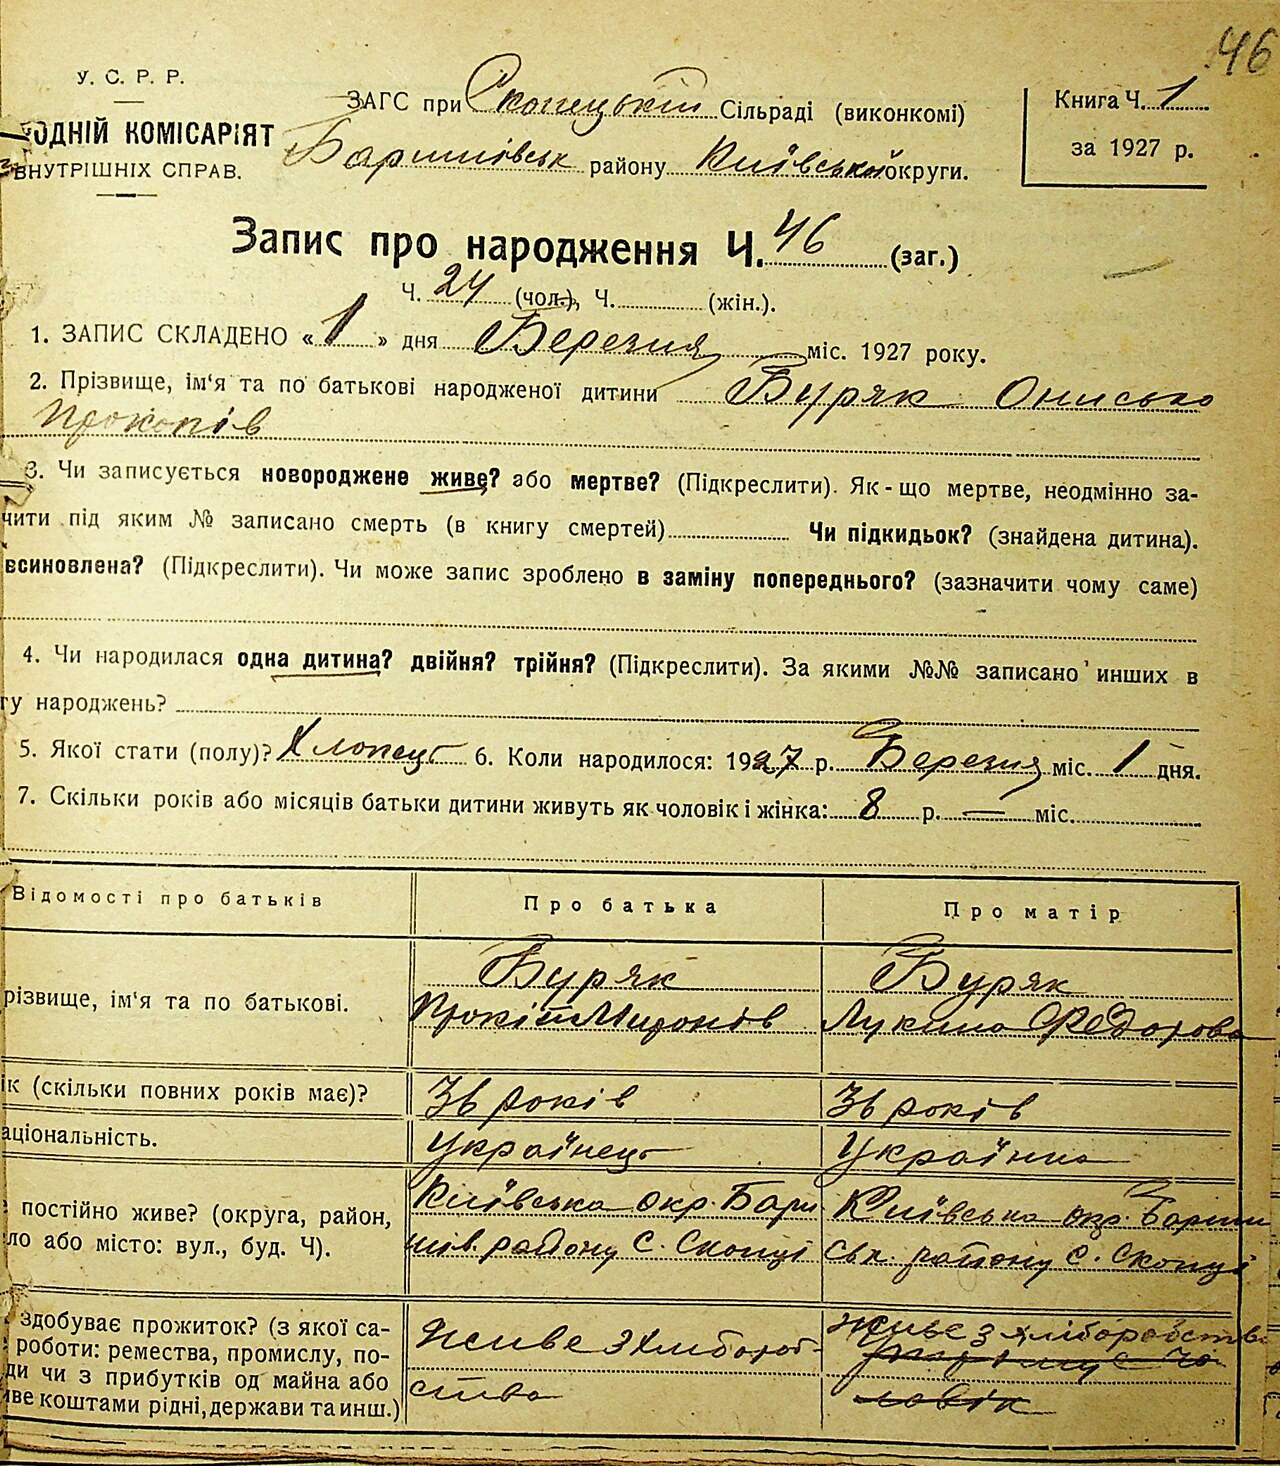 46
У. С. Р. Р.
ОДНІЙ КОМІСАРІЯТ
ВНУТРІШНІХ СПРАВ.
ЗАГС при Скопецькій Сільраді (виконкомі)
Баришівськ району Київської округи.
Книга Ч. 1
за 1927 р.
Запис про народження Ч. 46 (заг.)
Ч. 24 (чол.), Ч. (жін.).
1. ЗАПИС СКЛАДЕНО « 1 » дня Березня міс. 1927 року.
2. Прізвище, ім'я та по батькові народженої дитини Буряк Онисько
Прокопів
3. Чи записується новороджене живе? або мертве? (Підкреслити). Як-що мертве, неодмінно за-
чити під яким № записано смерть (в книгу смертей) Чи підкидьок? (знайдена дитина).
всиновлена? (Підкреслити). Чи може запис зроблено в заміну попереднього? (зазначити чому саме)
4. Чи народилася одна дитина? двійня? трійня? (Підкреслити). За якими №№ записано инших в
гу народжень?
5. Якої стати (полу)? Хлопець 6. Коли народилося: 1927 р. Березня міс. 1 дня.
7. Скільки років або місяців батьки дитини живуть як чоловік і жінка: 8 р. — міс.
Відомості про батьків Про батька Про матір
різвище, ім'я та по батькові.
Буряк
Прокіп Миронів
Буряк
Лукина Федорова
ік (скільки повних років має)? 36 років 36 років
аціональність. Українець Українка
постійно живе? (округа, район,
ло або місто: вул., буд. Ч).
Київська окр. Бари
шів. району С. Скопці
Київська окр. Бариш
ськ. району С. Скопці
здобуває прожиток? (з якої са-
роботи: ремества, промислу, по-
ди чи з прибутків од майна або
иве коштами рідні, держави та инш.)
Живе з хлібороб-
ства
Живе з хліборобства